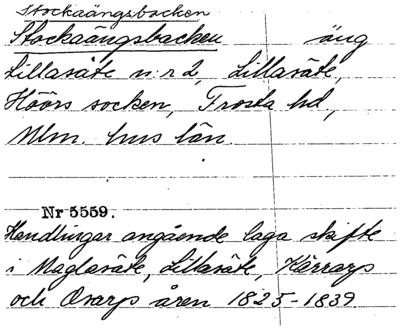 Stockaängsbacken
Stockaängsbacken äng
Lillasäte n:r 2, Lillasäte,
Höörs socken, Frosta hd,
Mlm. hus län.
Nr 5559.
Handlingar angående laga skifte
i Maglasäte, Lillasäte, Kärrarp
och Ovarp åren 1825-1839.